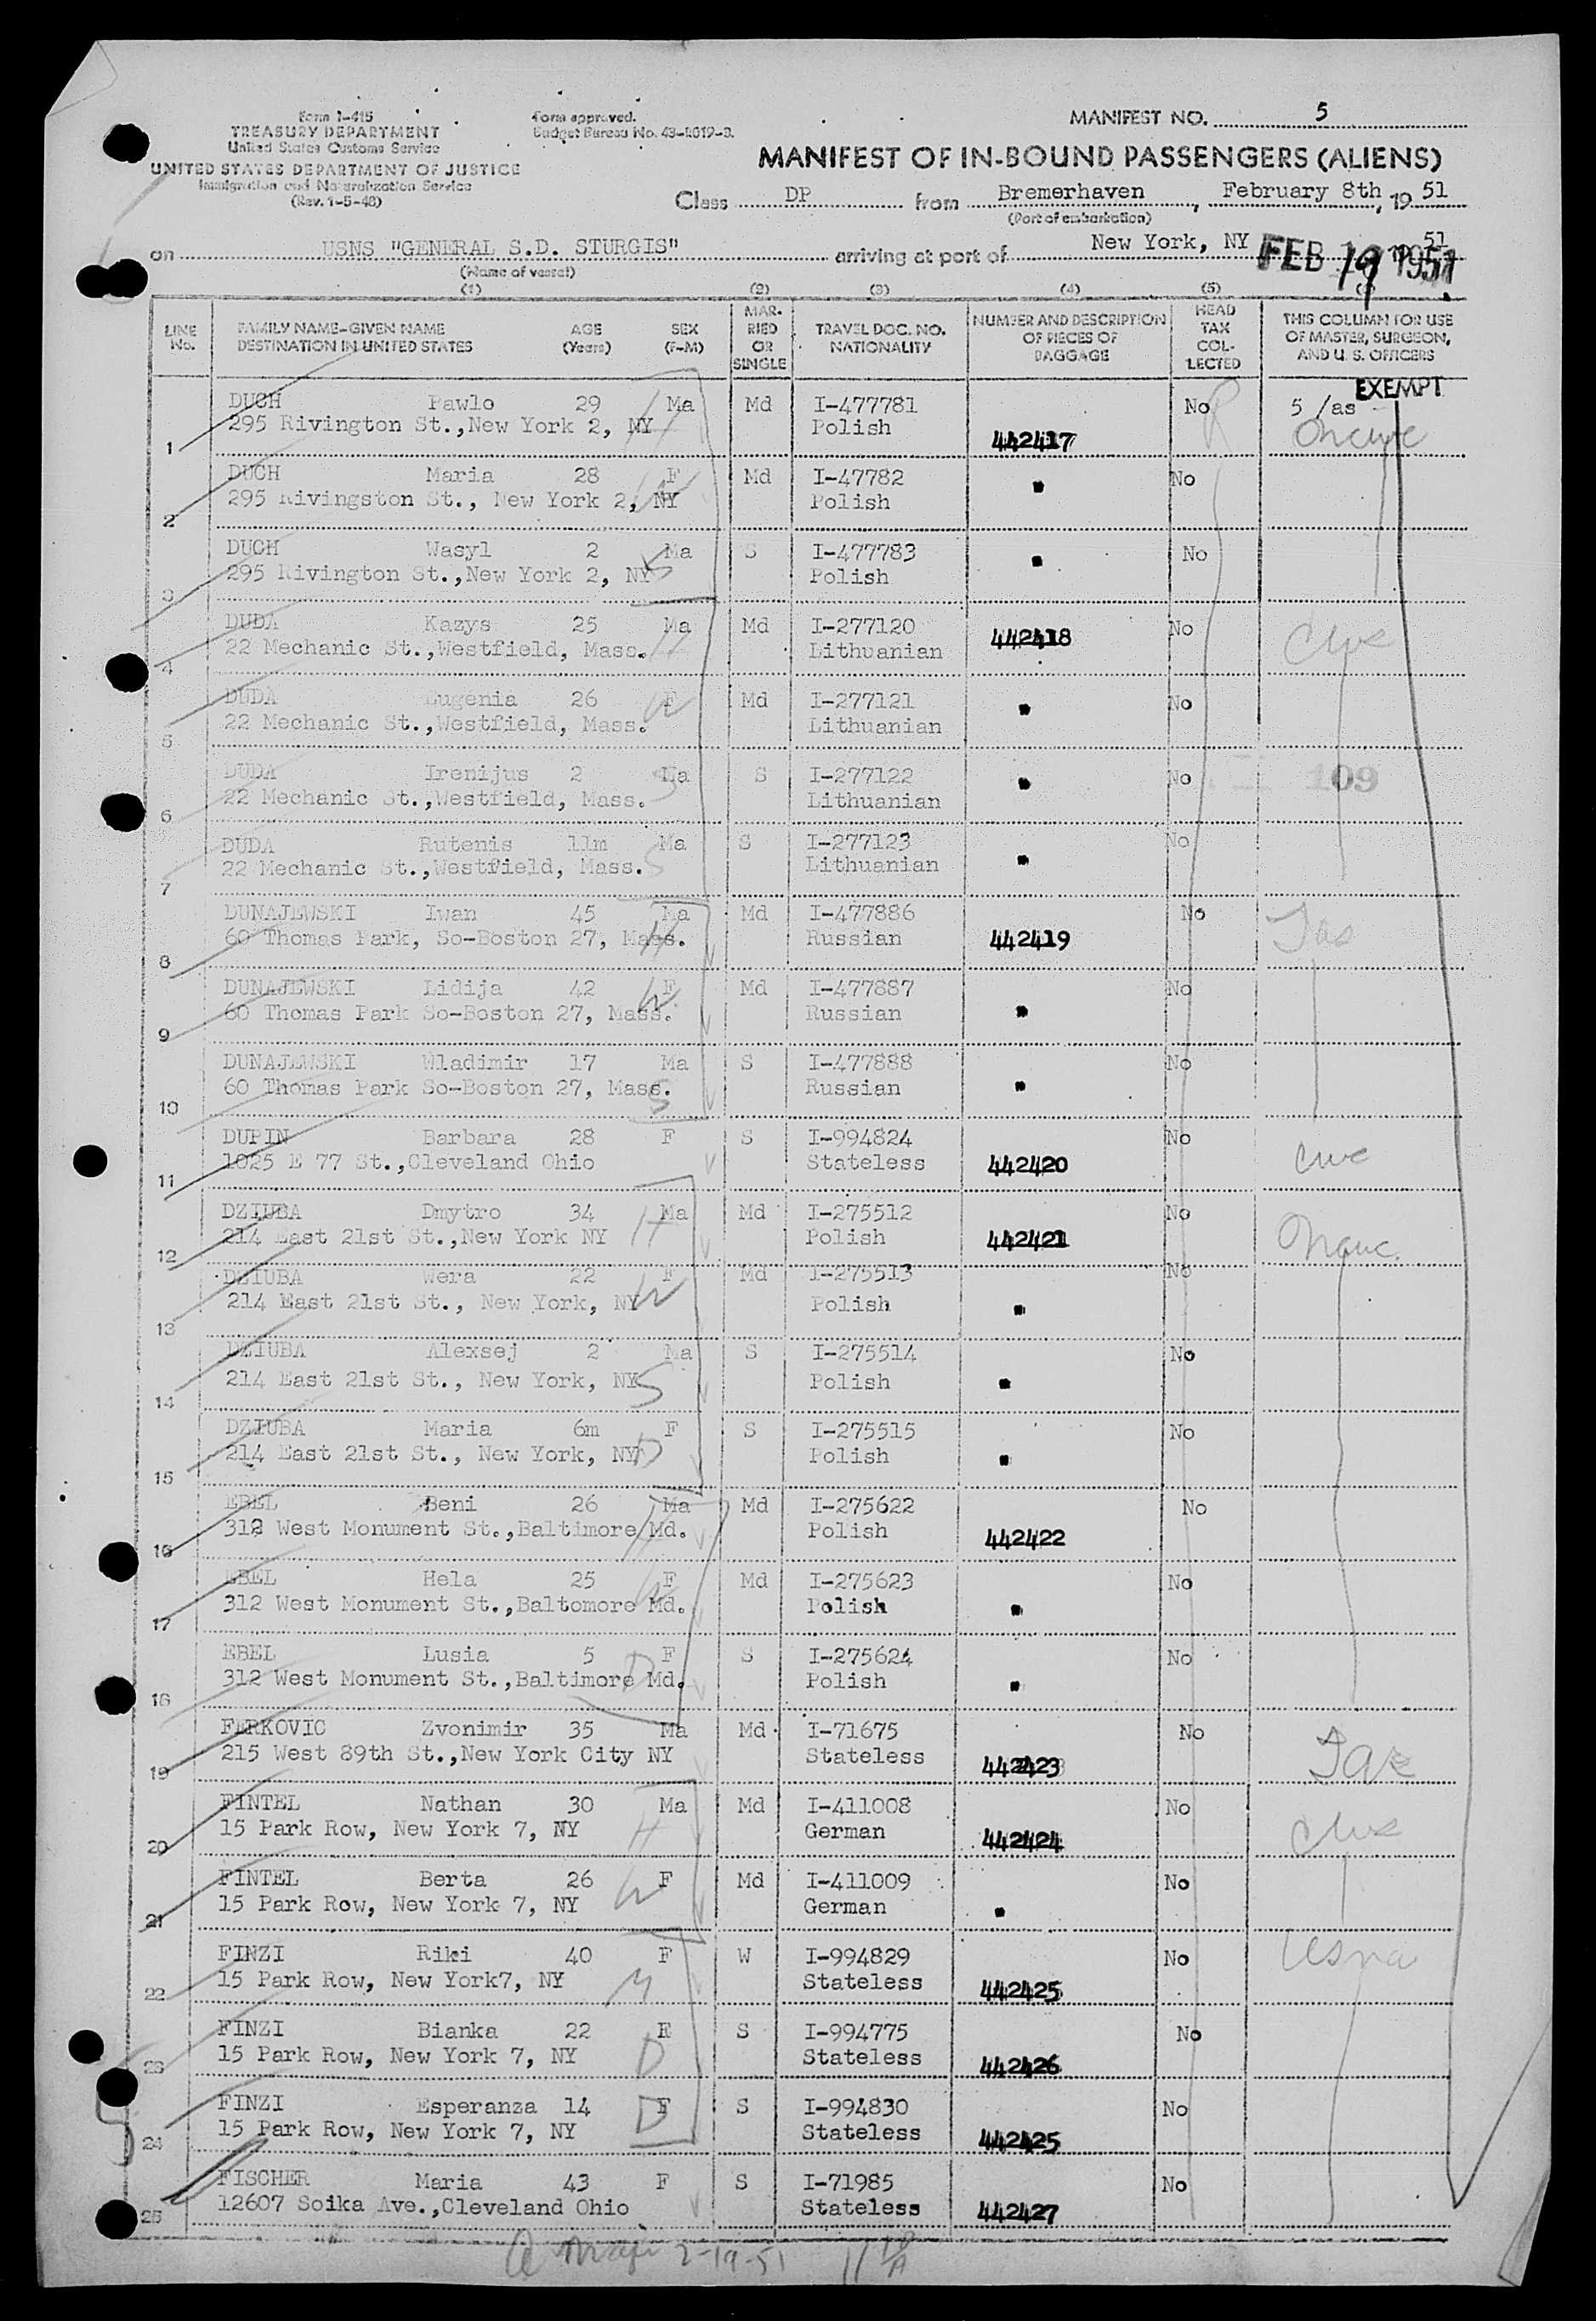 Form I-415
TREASURY DEPARTMENT
United States Customs Service
UNITED STATES DEPARTMENT OF JUSTICE
Immigration and Naturalization Service
(Rev. 1-5-48)
Form approved.
Budget Bureau No. 43-R019-3.
MANIFEST NO. 5
MANIFEST OF IN-BOUND PASSENGERS (ALIENS)
Class DP from Bremerhaven, February 8th, 19 51
(Port of embarkation)
on USNS "GENERAL S.D. STURGIS" arriving at port of New York, NY 51
FEB 19 1951
(Name of vessel)
(1) (2) (3) (4) (5)
LINE No. FAMILY NAME—GIVEN NAME DESTINATION IN UNITED STATES AGE (Years) SEX (F-M) MARRIED OR SINGLE TRAVEL DOC. NO. NATIONALITY NUMBER AND DESCRIPTION OF PIECES OF BAGGAGE HEAD TAX COLLECTED THIS COLUMN FOR USE OF MASTER, SURGEON, AND U. S. OFFICERS
EXEMPT
DUCH Pawlo 29 Ma Md I-477781 No 5 /as
1 295 Rivington St.,New York 2, NY H Polish 442417
DUCH Maria 28 F Md I-47782 " No
2 295 Rivingston St., New York 2, NY W Polish
DUCH Wasyl 2 Ma S I-477783 " No
3 295 Rivington St.,New York 2, NY S Polish
DUDA Kazys 25 Ma Md I-277120 442418 No
4 22 Mechanic St.,Westfield, Mass. H Lithuanian
DUDA Eugenia 26 F Md I-277121 " No
5 22 Mechanic St.,Westfield, Mass. W Lithuanian
DUDA Irenijus 2 Ma S I-277122 " No 109
6 22 Mechanic St.,Westfield, Mass. S Lithuanian
DUDA Rutenis 11m Ma S I-277123 " No
7 22 Mechanic St.,Westfield, Mass. S Lithuanian
DUNAJEWSKI Iwan 45 Ma Md I-477886 No
8 60 Thomas Park, So-Boston 27, Mass. H Russian 442419
DUNAJEWSKI Lidija 42 F Md I-477887 No
9 60 Thomas Park So-Boston 27, Mass. W Russian "
DUNAJEWSKI Wladimir 17 Ma S I-477888 No
10 60 Thomas Park So-Boston 27, Mass. S Russian "
DUPIN Barbara 28 F S I-994824 No
11 1025 E 77 St.,Cleveland Ohio Stateless 442420
DZIUBA Dmytro 34 Ma Md I-275512 No
12 214 East 21st St.,New York NY H Polish 442421
DZIUBA Wera 22 F Md I-275513 No
13 214 East 21st St., New York, NY W Polish "
DZIUBA Alexsej 2 Ma S I-275514 No
14 214 East 21st St., New York, NY S Polish "
DZIUBA Maria 6m F S I-275515 No
15 214 East 21st St., New York, NY D Polish "
EBEL Beni 26 Ma Md I-275622 No
16 312 West Monument St.,Baltimore Md. H Polish 442422
EBEL Hela 25 F Md I-275623 No
17 312 West Monument St.,Baltomore Md. W Polish "
EBEL Lusia 5 F S I-275624 No
18 312 West Monument St.,Baltimore Md. D Polish "
FERKOVIC Zvonimir 35 Ma Md I-71675 No
19 215 West 89th St.,New York City NY Stateless 442423
FINTEL Nathan 30 Ma Md I-411008 No
20 15 Park Row, New York 7, NY H German 442424
FINTEL Berta 26 F Md I-411009 No
21 15 Park Row, New York 7, NY W German "
FINZI Riki 40 F W I-994829 No
22 15 Park Row, New York7, NY M Stateless 442425
FINZI Bianka 22 F S I-994775 No
23 15 Park Row, New York 7, NY D Stateless 442426
FINZI Esperanza 14 F S I-994830 No
24 15 Park Row, New York 7, NY D Stateless 442425
FISCHER Maria 43 F S I-71985 No
25 12607 Soika Ave.,Cleveland Ohio Stateless 442427
2-19-51